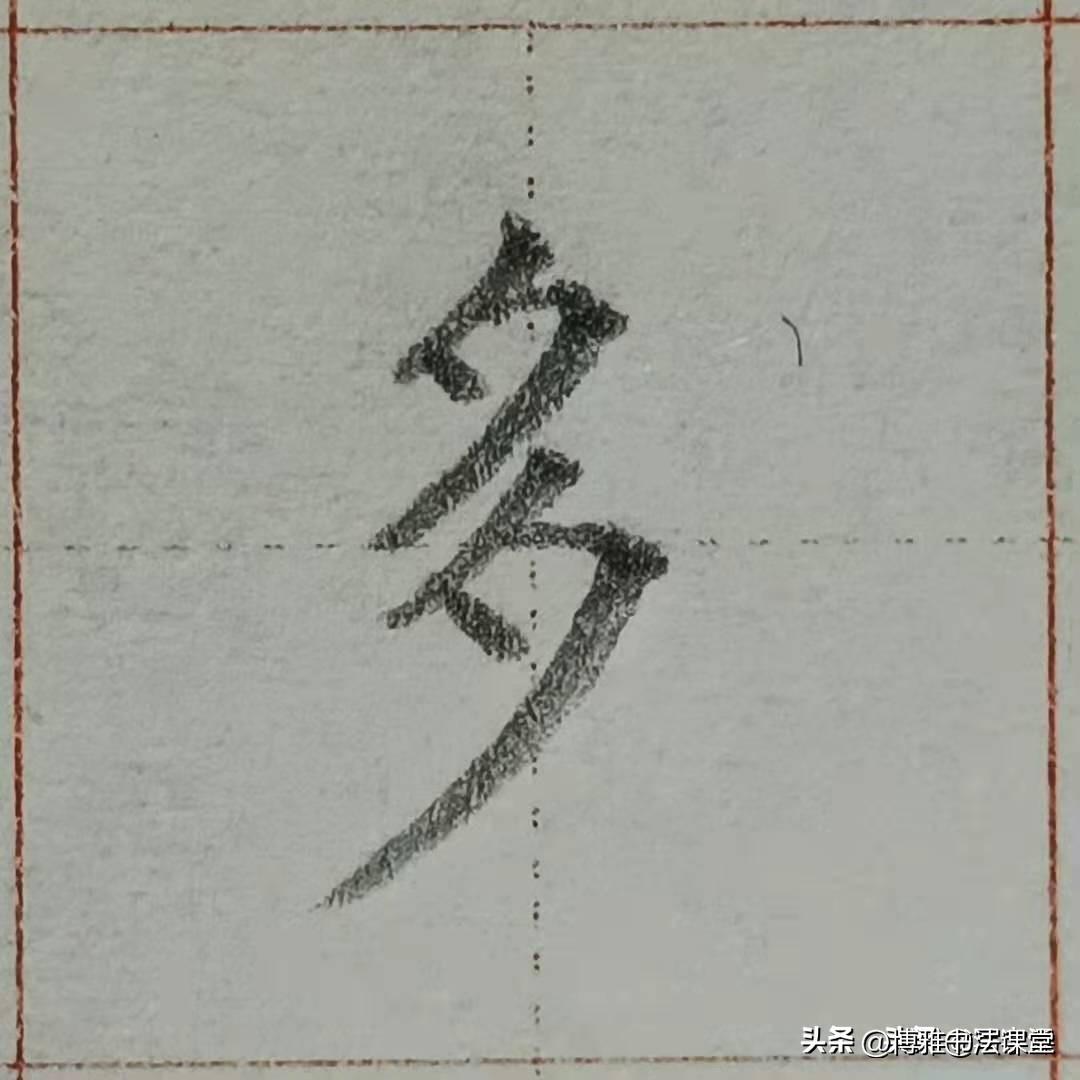 多
头条 @博雅书法课堂